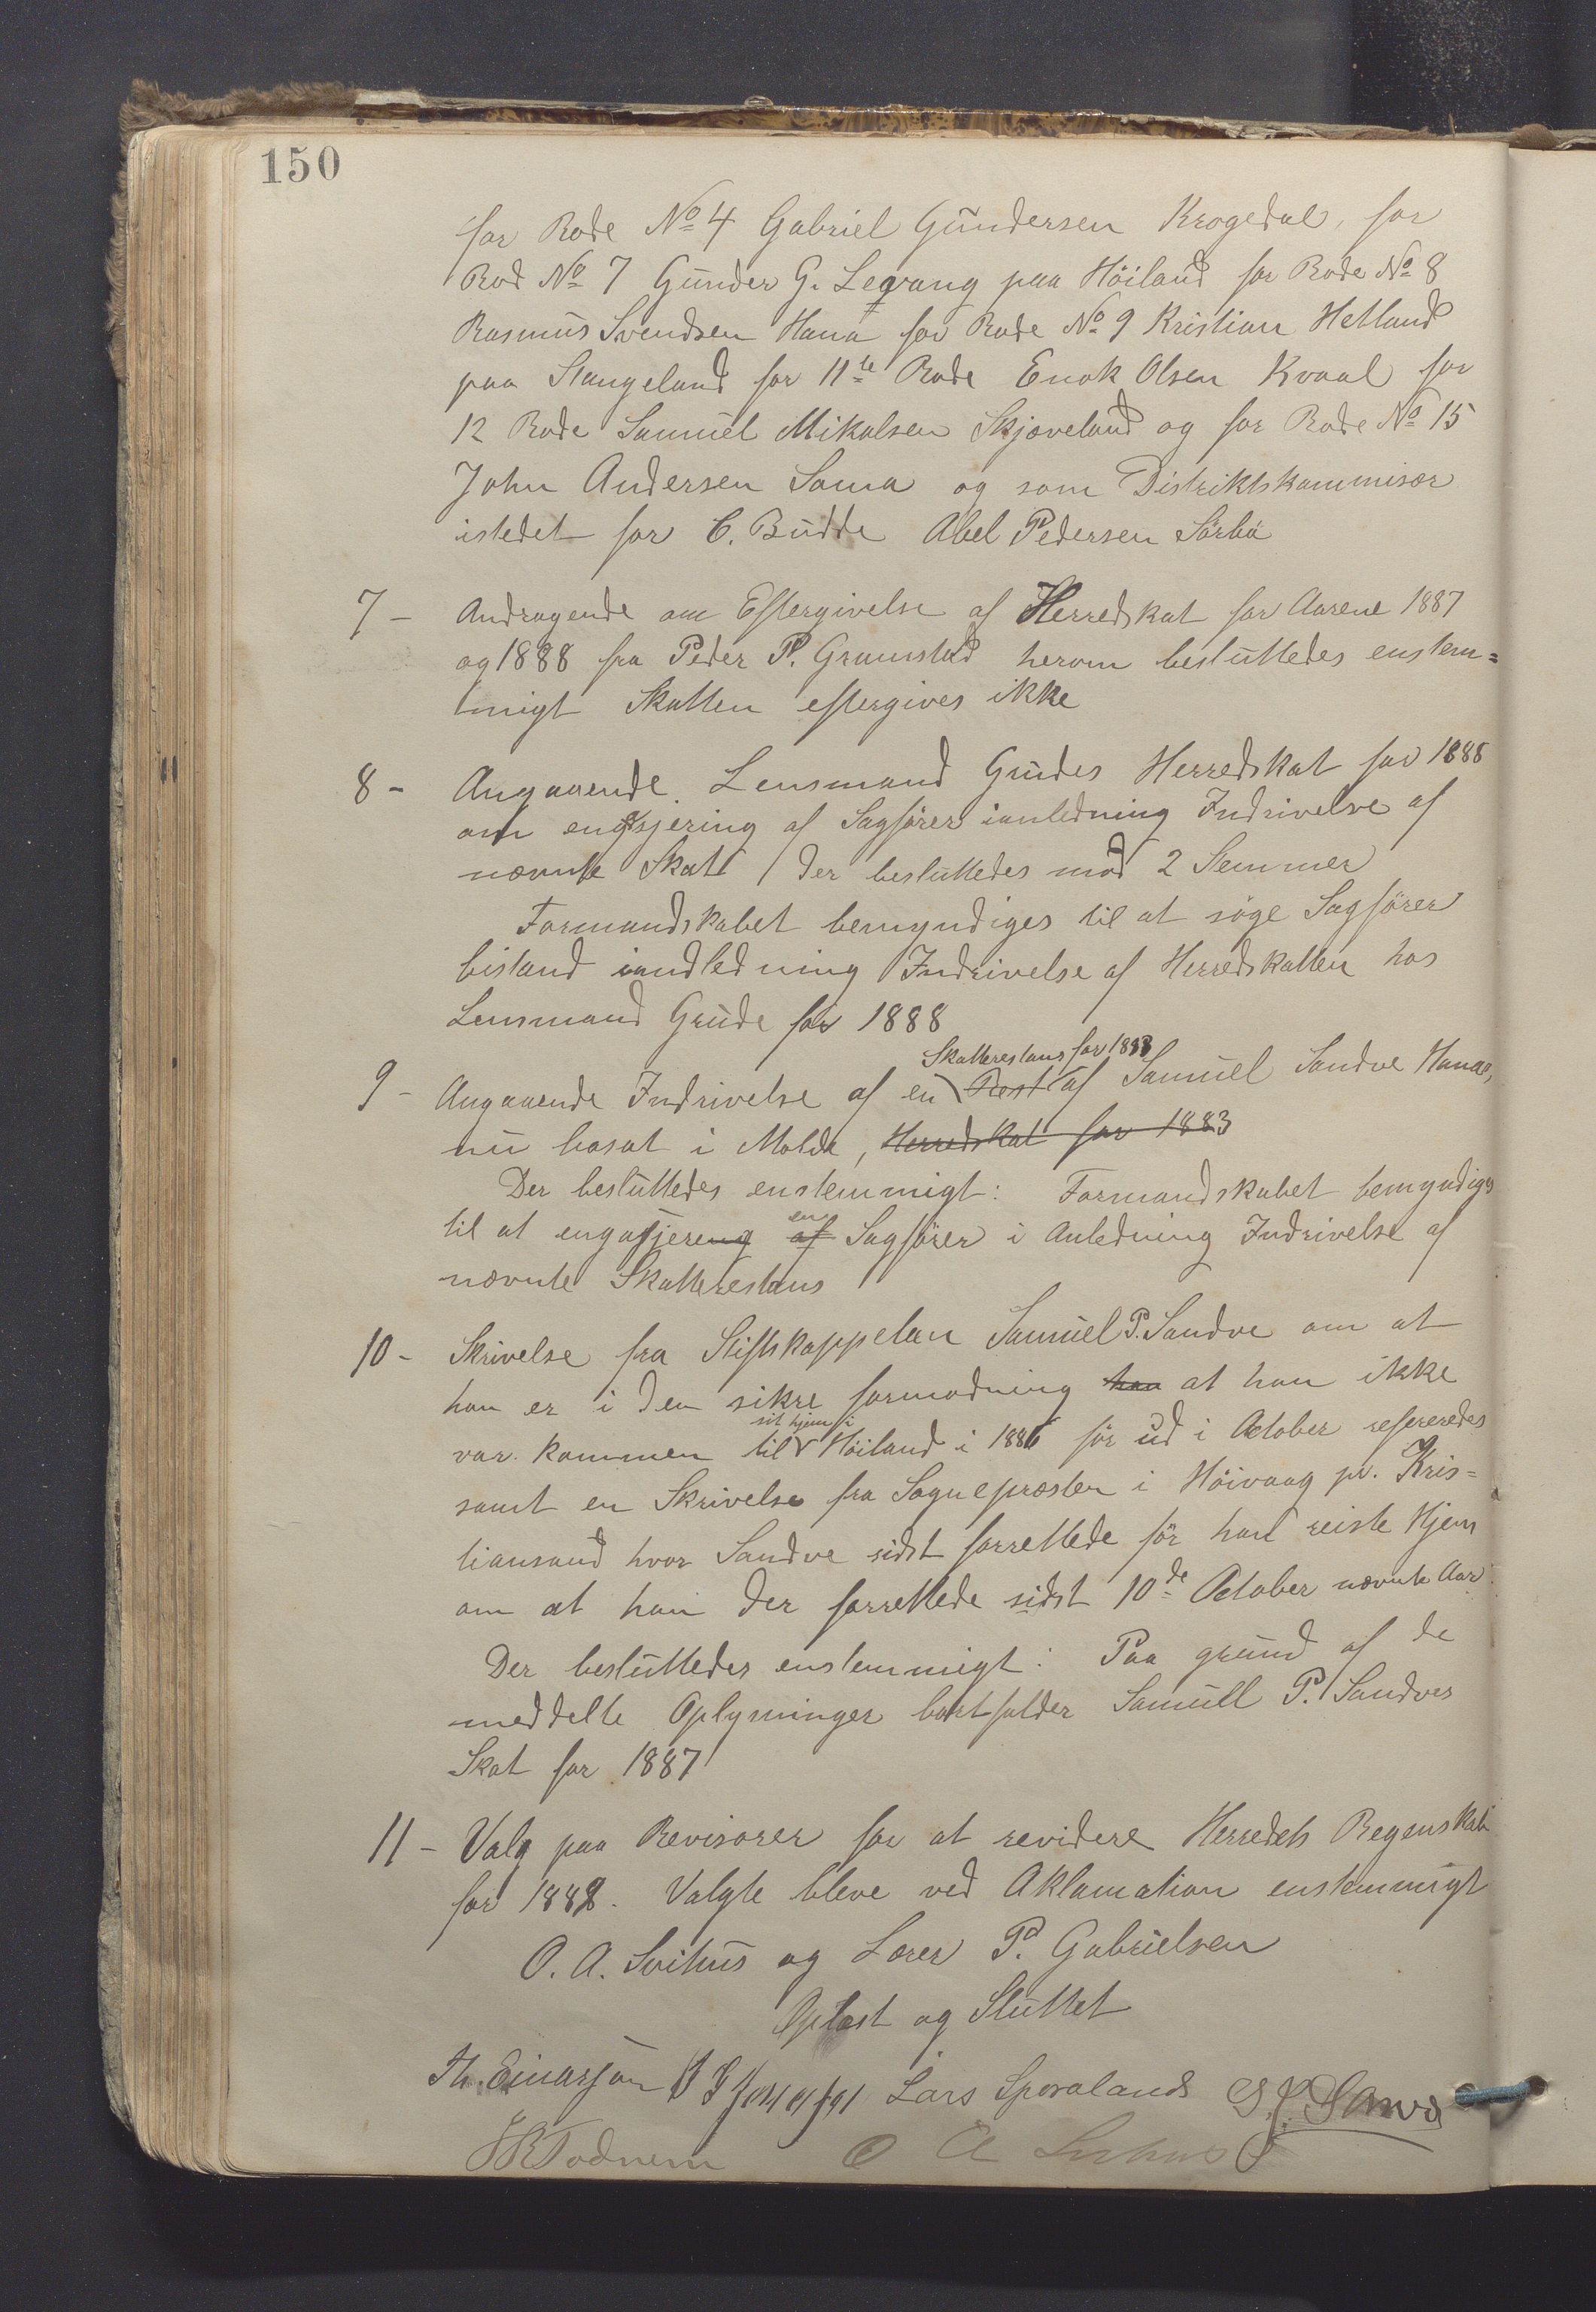 150
for Rode No 4 Gabriel Gundersen Krogedal, for
Rod No 7 Gunder G. Legvang paa Höiland for Rode No 8
Rasmus Svendsen Hana for Rode No 9 Kristian Hetland
paa Stangeland for 11te Rode Enok Olsen Kvaal for
12 Rode Samuel Mikalsen Skjæveland og for Rode No 15
John Andersen Soma og som Distriktskommisær
istedet for C. Budde Abel Pedersen Sörbö
7 - Andragende om Eftergivelse af Herredskat for Aarene 1887
og 1888 fra Peder P. Gramstad herom besluttedes enstem=
migt Skatten eftergives ikke
8 - Angaaende Lensmand Grudes Herredskat for 1888
om engasjering af Sagförer ianledning Indrivelse af
nævnte Skat / Der besluttedes mod 2 Semmer
Formandskabet bemyndiges til at söge Sagförer
bistand iandledning Indrivelse af Herredskatten hos
Lensmand Grude for 1888
Skatterestans for 1883
9 - Angaaende Indrivelse af en Rest af Samuel Sandve Hana,
nu bosat i Molde, Herredskat for 1883
Der besluttedes enstemmigt: Formandskabet bemyndiges
en
til at engasjereng af Sagförer i Anledning Indrivelse af
nævnte Skatterestans
10 - Skrivelse fra Stiftskappelan Samuel P. Sandve om at
han er i den sikre formodning han at han ikke
sit hjem i
var kommen til Höiland i 1886 för ud i October refereredes
samt en Skrivelse fra Sognepræsten i Höivaag pr. Kris=
tiansand hvor Sandve sidst forrettede för han reiste Hjem
om at han der forrettede sidst 10de October nævnte Aar.
Der besluttedes enstemmigt: Paa grund af de
meddelte Oplysninger bortfalder Samuell P. Sandves
Skat for 1887
11 - Valg paa Revisorer for at revidere Herredets Regenskab
for 1888. Valgte bleve ved Aklamation enstemmigt
O. A. Svihus og Lærer P. Gabrielsen
Oplæst og Sluttet
Th. Einarsen Lars Sporaland
Todnem O A Svihus